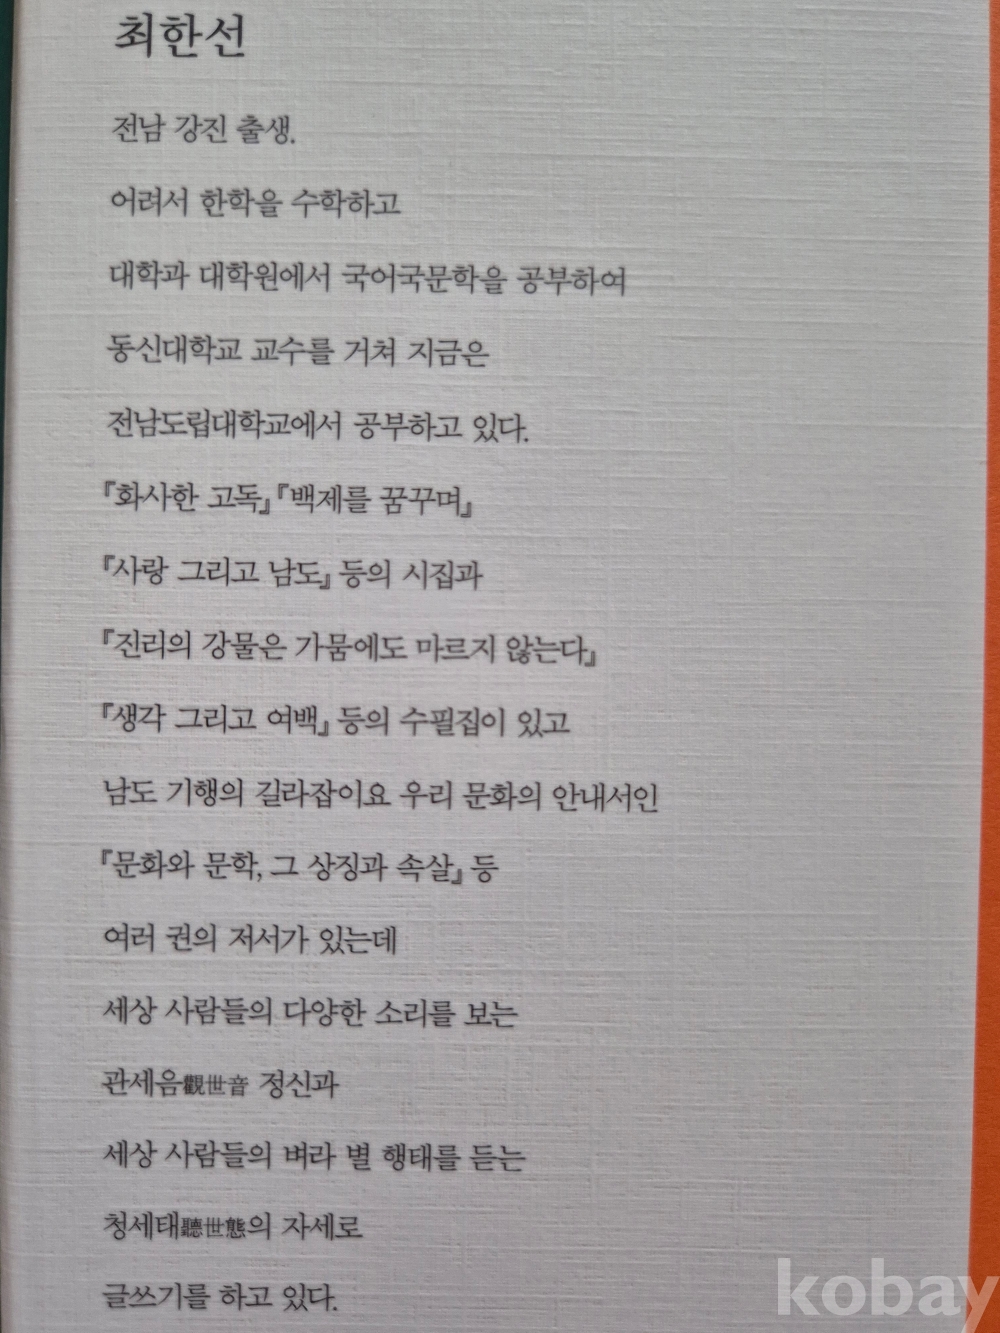 최한선
전남 강진 출생.
어려서 한학을 수학하고
대학과 대학원에서 국어국문학을 공부하여
동신대학교 교수를 거쳐 지금은
전남도립대학교에서 공부하고 있다.
『화사한 고독』『백제를 꿈꾸며』
『사랑 그리고 남도』 등의 시집과
『진리의 강물은 가뭄에도 마르지 않는다』
『생각 그리고 여백』 등의 수필집이 있고
남도 기행의 길라잡이요 우리 문화의 안내서인
『문화와 문학, 그 상징과 속살』 등
여러 권의 저서가 있는데
세상 사람들의 다양한 소리를 보는
관세음觀世音 정신과
세상 사람들의 벼라 별 행태를 듣는
청세태聽世態의 자세로
글쓰기를 하고 있다.
kobay